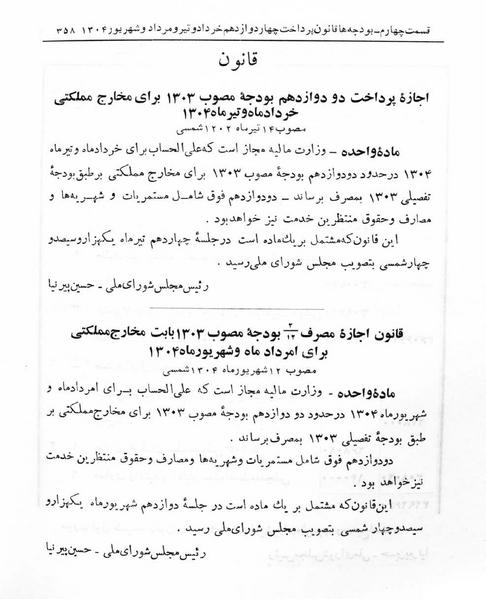 قسمت چهارم ـ بودجه‌ها قانون پرداخت چهار دوازدهم خرداد و تیر و مرداد و شهریور ۱۳۰۴ ۳۵۸
قانون
اجازهٔ پرداخت دو دوازدهم بودجهٔ مصوب ۱۳۰۳ برای مخارج مملکتی
خرداد ماه و تیر ماه ۱۳۰۴
مصوب ۱۴ تیر ماه ۱۲۰۲ شمسی
مادهٔ واحده ـ وزارت مالیه مجاز است که علی‌الحساب برای خرداد ماه و تیرماه
۱۳۰۴ در حدود دو دوازدهم بودجهٔ مصوب ۱۳۰۳ برای مخارج مملکتی بر طبق بودجهٔ
تفصیلی ۱۳۰۳ بمصرف برساند ـ دو دوازدهم فوق شامل مستمریات و شهریه‌ها و
مصارف و حقوق منتظرین خدمت نیز خواهد بود .
این قانون که مشتمل بر یک ماده است در جلسهٔ چهاردهم تیر ماه یکهزار و سیصد و
چهار شمسی بتصویب مجلس شورای ملی رسید .
رئیس مجلس شورای ملی ـ حسین پیرنیا
قانون اجازهٔ مصرف ۲/۱۲ بودجهٔ مصوب ۱۳۰۳ بابت مخارج مملکتی
برای امرداد ماه و شهریور ماه ۱۳۰۴
مصوب ۱۲ شهریور ماه ۱۳۰۴ شمسی
مادهٔ واحده ـ وزارت مالیه مجاز است که علی‌الحساب برای امرداد ماه و
شهریور ماه ۱۳۰۴ در حدود دو دوازدهم بودجهٔ مصوب ۱۳۰۳ برای مخارج مملکتی بر
طبق بودجهٔ تفصیلی ۱۳۰۳ بمصرف برساند .
دو دوازدهم فوق شامل مستمریات و شهریه‌ها و مصارف و حقوق منتظرین خدمت
نیز خواهد بود .
این قانون که مشتمل بر یک ماده است در جلسهٔ دوازدهم شهریور ماه یکهزار و
سیصد و چهار شمسی بتصویب مجلس شورای ملی رسید .
رئیس مجلس شورای ملی ـ حسین پیرنیا